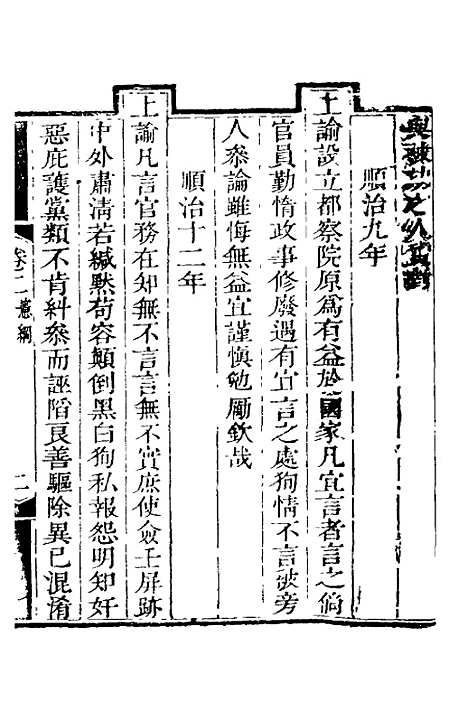 順治九年
上諭設立都察院原爲有益於國家凡宜言者言之倘
官員勤惰政事修廢遇有宜言之處狥情不言被旁
人叅論雖悔無益宜謹愼勉勵欽哉
順治十二年
上諭凡言官務在知無不言言無不實庶使僉壬屏跡
中外肅清若緘默苟容顛倒黑白狥私報怨明知奸
惡庇護黨類不肯糾叅而誣陷良善驅除異已混淆
卷二憲綱
二